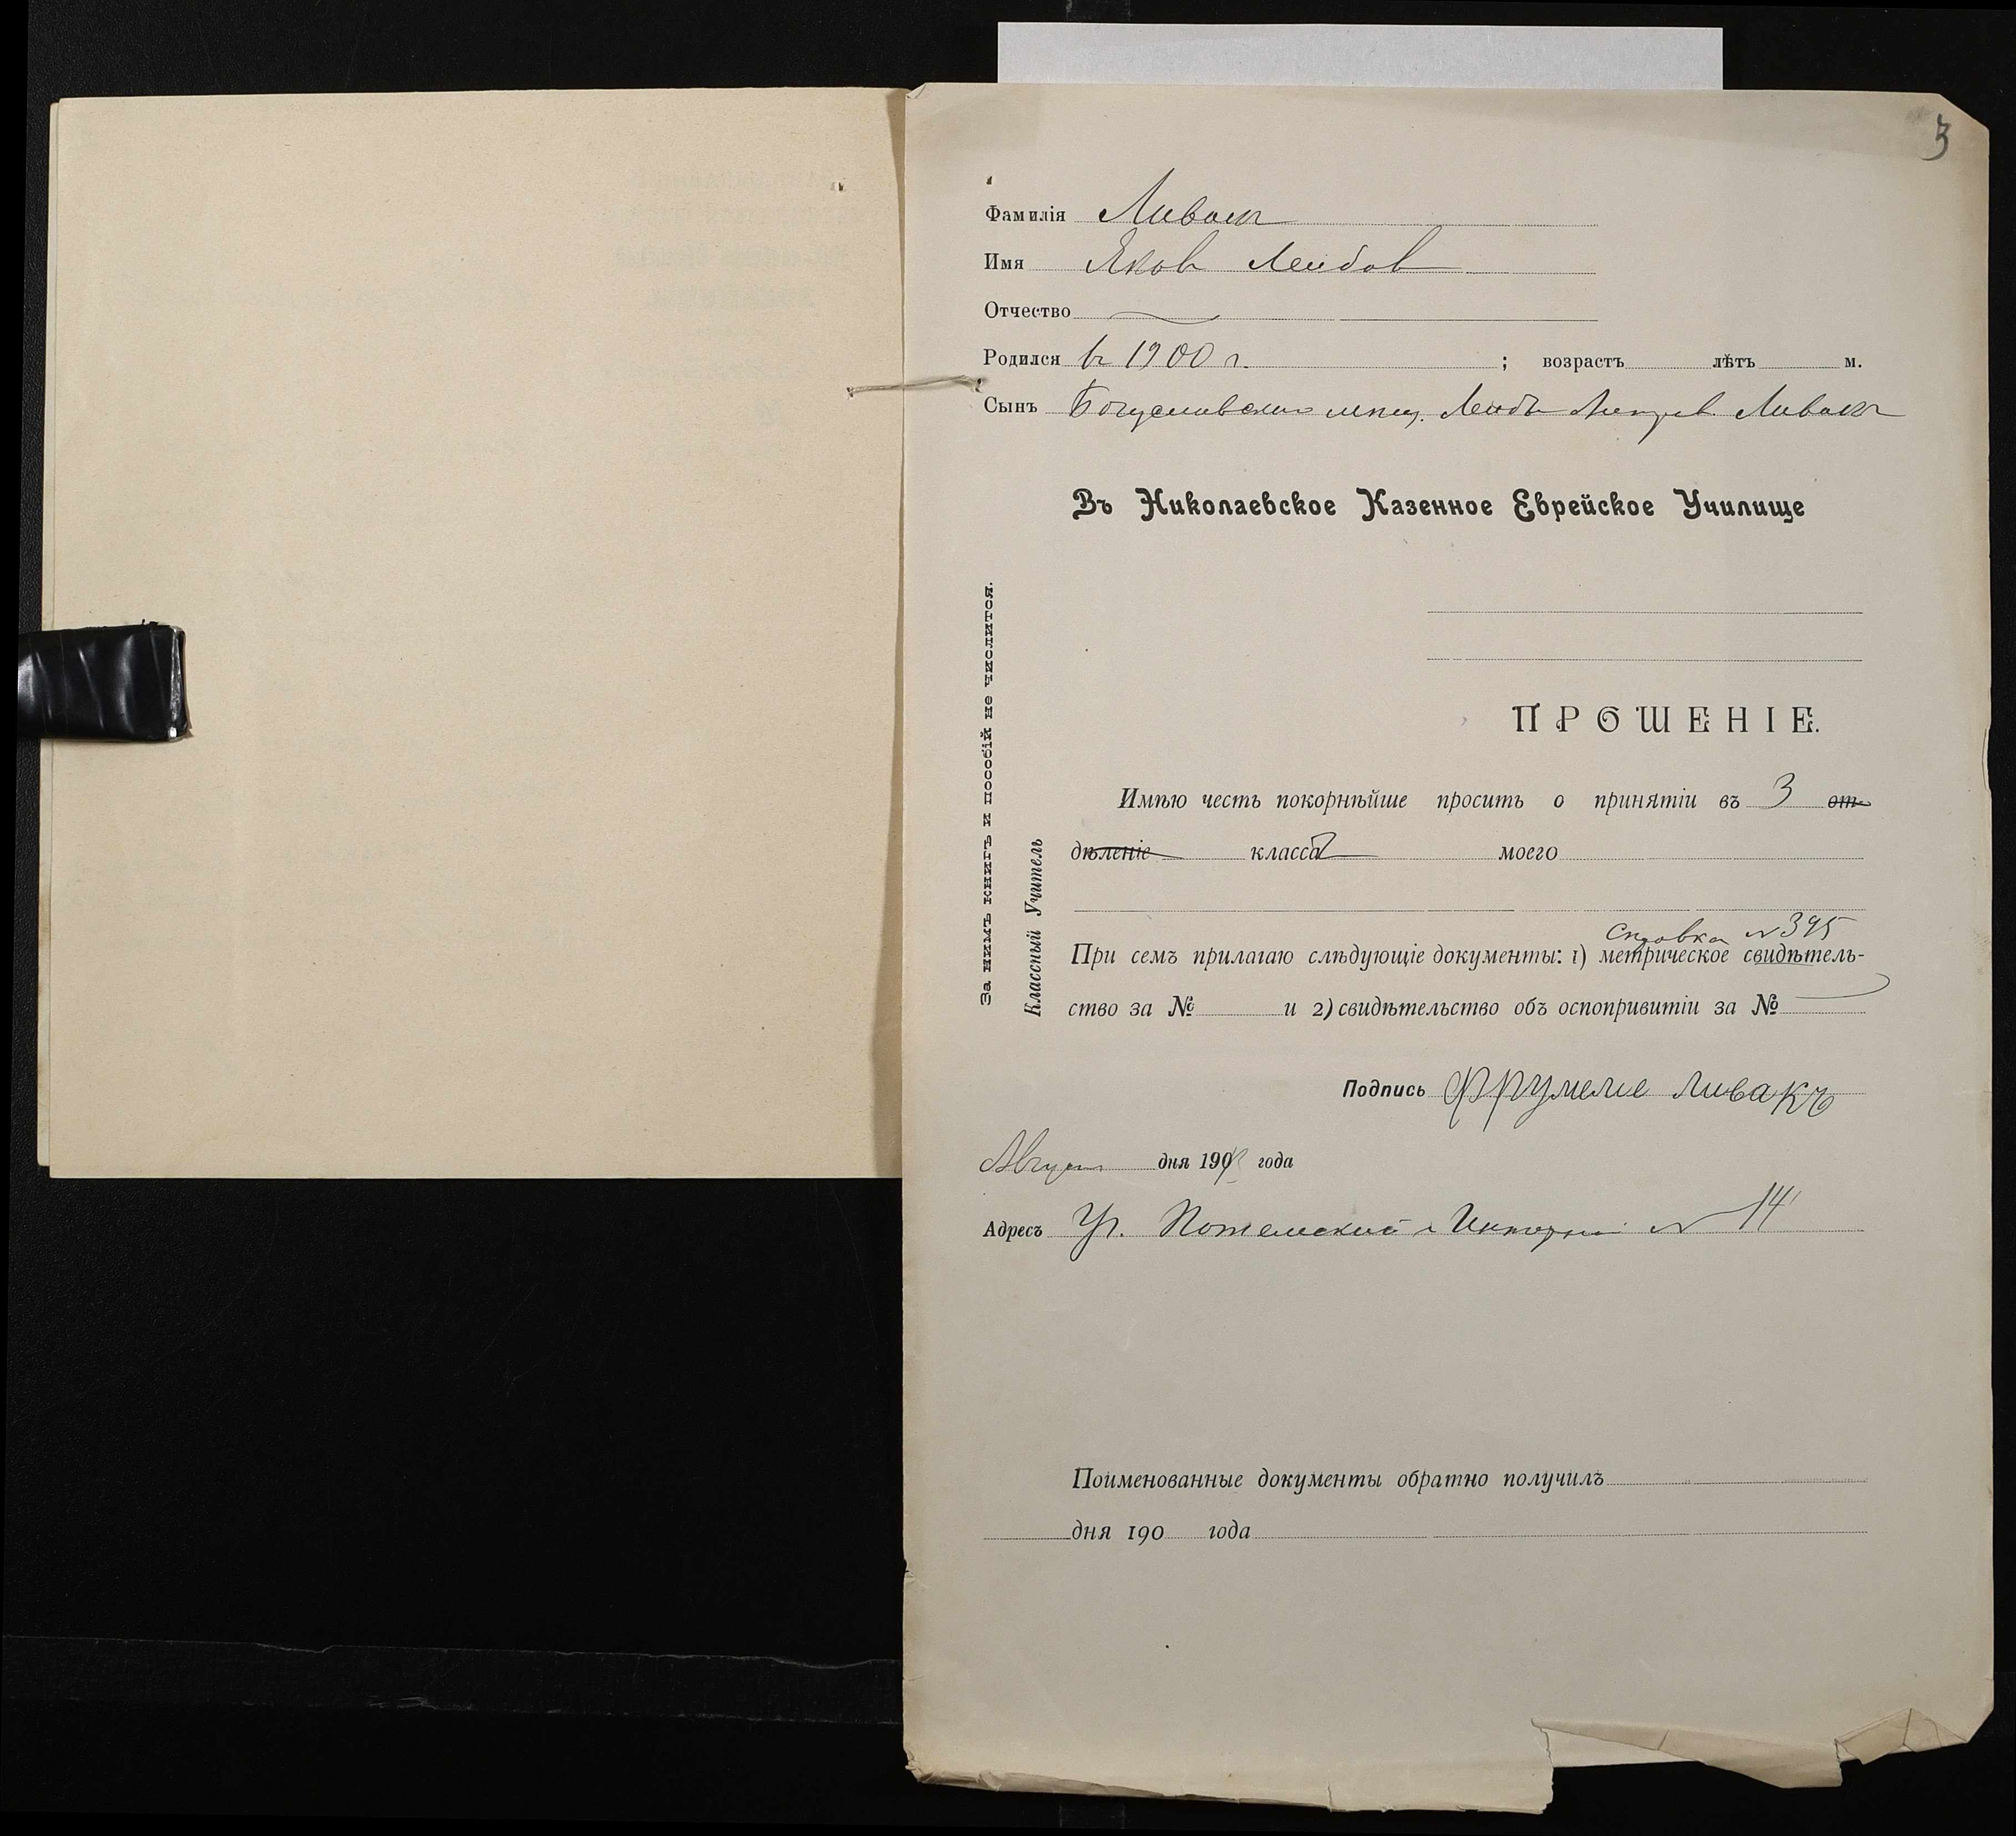 3
Фамилія Ливакъ
Имя Яковъ Лейбов
Отчество
Родился въ 1900 г. ; возрастъ лѣтъ м.
Сынъ Богуславскаго мѣщ. Лейбъ Ливакъ
Въ Николаевское Казенное Еврейское Училище
ПРОШЕНІЕ.
Имѣю честь покорнѣйше просить о принятіи въ 3 от-
дѣленіе класса моего
Справка № 395
При семъ прилагаю слѣдующіе документы: 1) метрическое свидѣтель-
ство за № и 2) свидѣтельство объ оспопривитіи за №
Подпись Фрумеле Ливакъ
Август дня 190 года
Адресъ Уг. Потемский и № 14
Поименованные документы обратно получилъ
дня 190 года
За нимъ книгъ и пособій не числится.
Классный Учитель